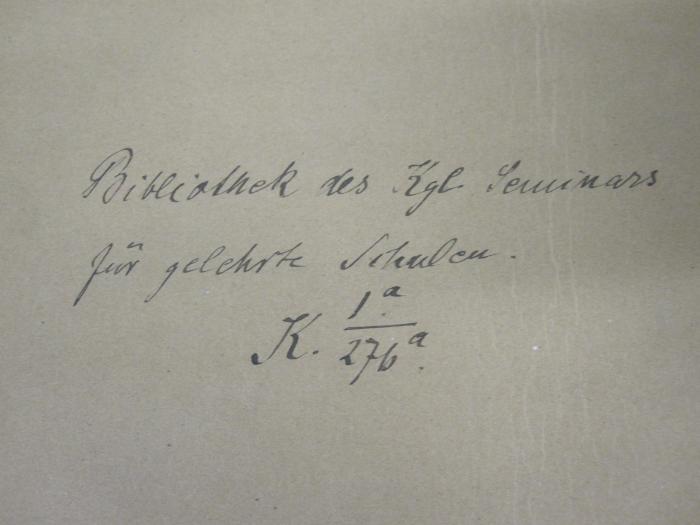 Bibliothek des Kgl. Seminars
für gelehrte Schulen.
K. 1.a/276a.